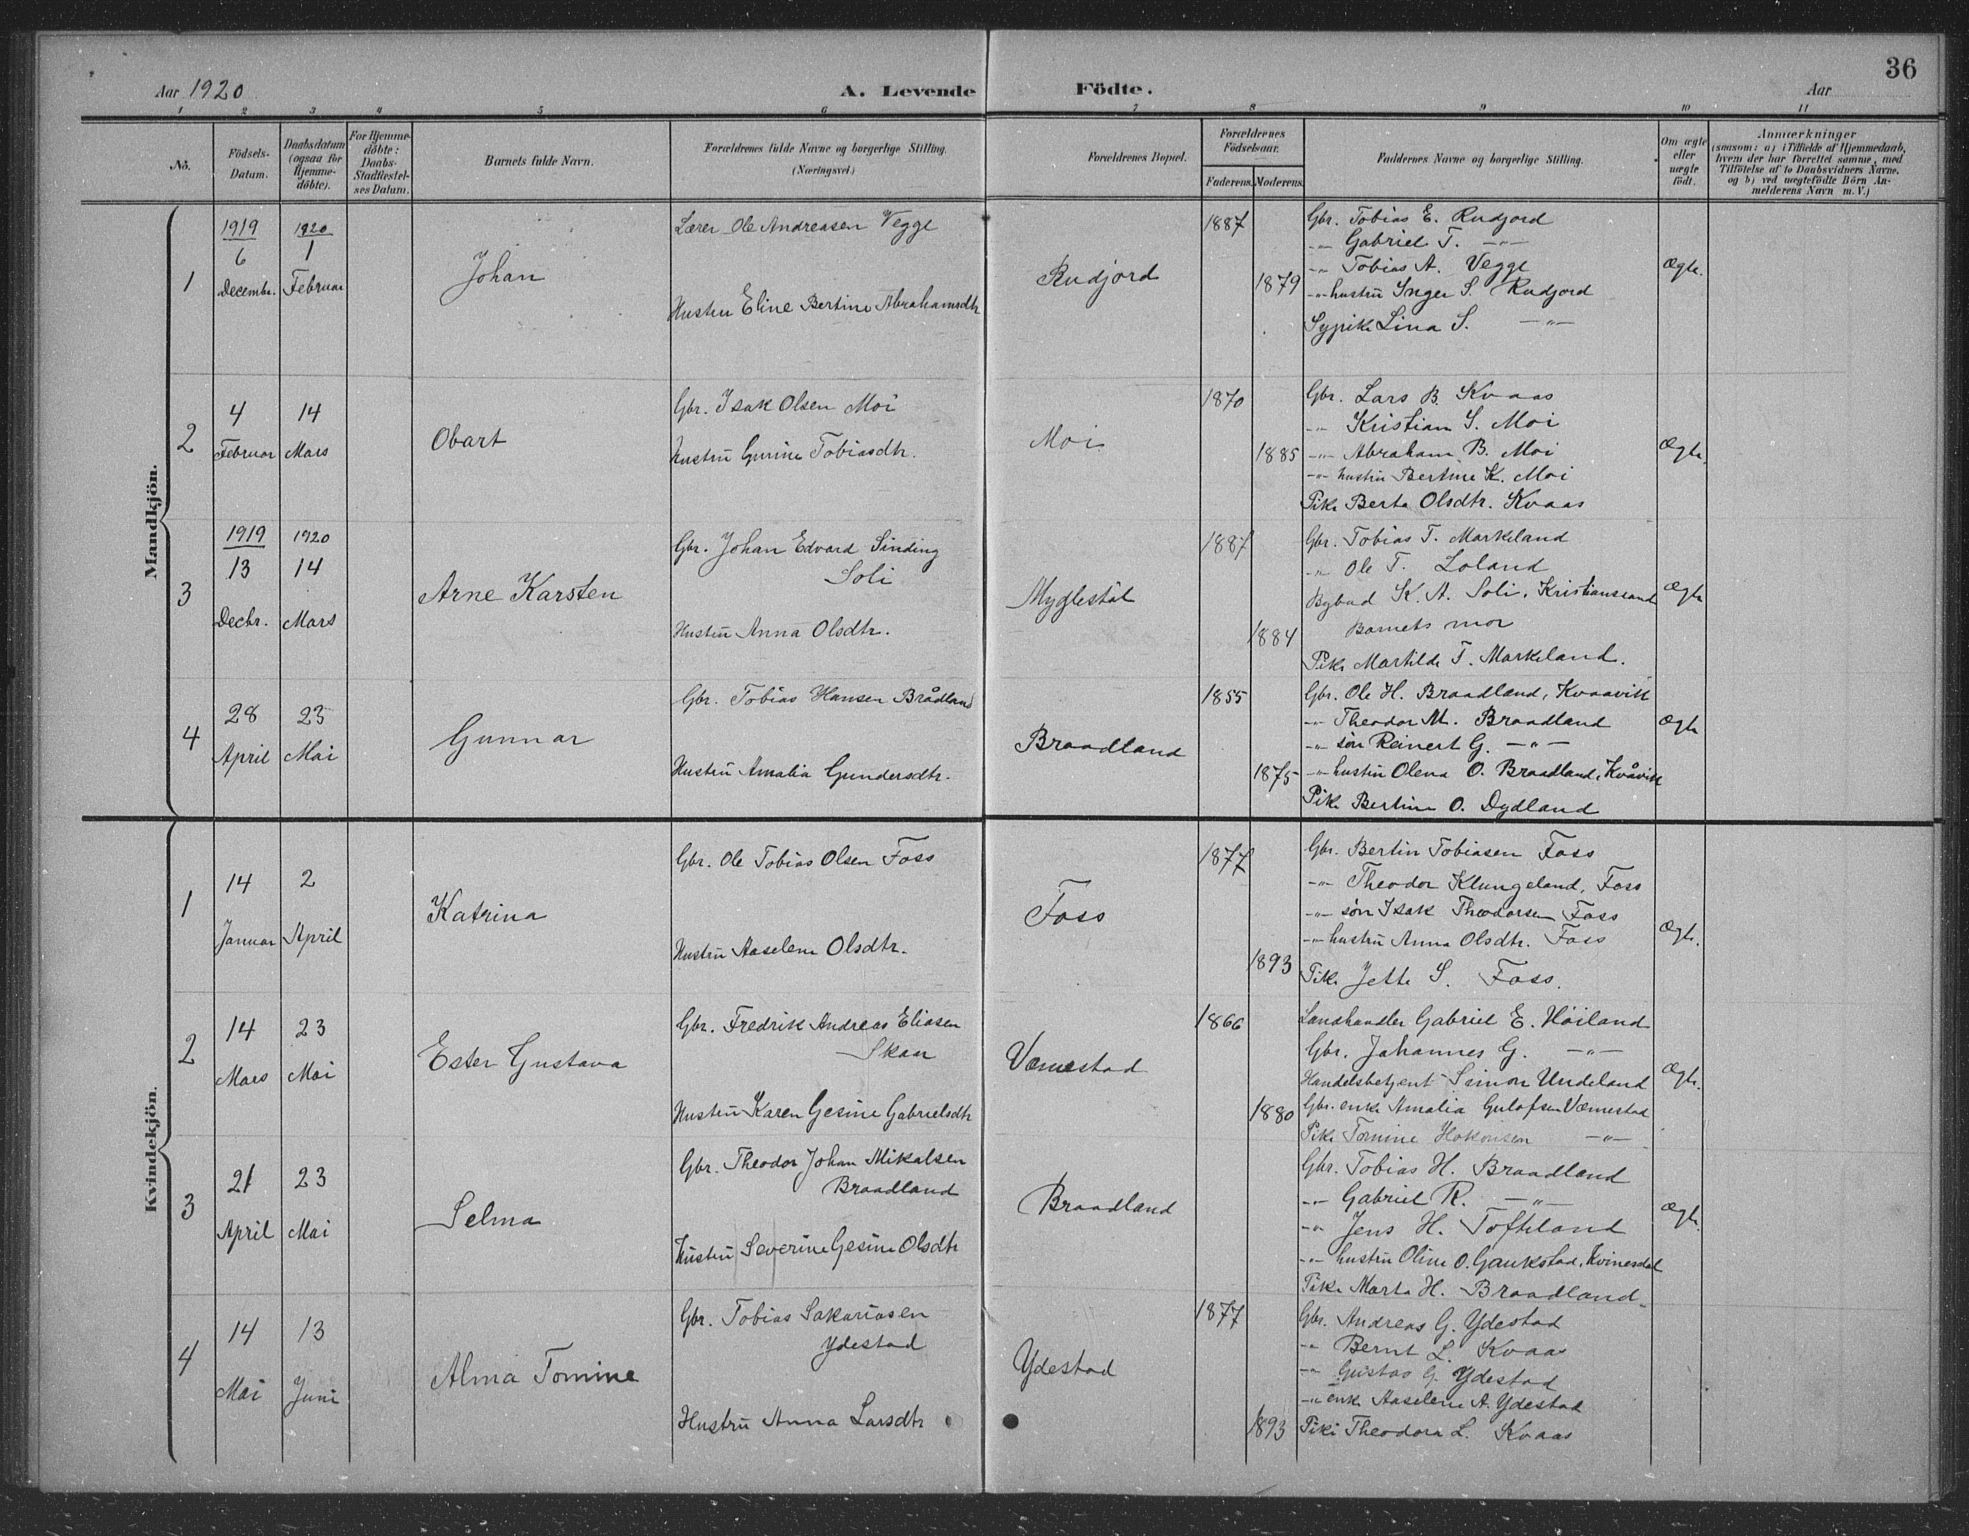 36
Aar 1920
A. Levende Födte.
Aar
1 2 3 4 5 6 7 8 9 10 11
Nô.
Födsels-Datum.
Daabsdatum (ogsaa for Hjemme-döbte).
For Hjemme-döbte: Daabs-Stadfæstel-ses Datum.
Barnets fulde Navn.
Forældrenes fulde Navne og borgerlige Stilling. (Næringsvei.)
Forældrenes Bopæl.
Forældrenes Födselsaar.
Faderens. Moderens.
Faddernes Navne og borgerlige Stilling.
Om ægte eller uægte födt.
Anmærkninger
(saasom: a) i Tilfælde af Hjemmedaab,
hvem der har forrettet samme, med
Tilföielse af to Daabsvidners Navne.
og b) ved uægtefödte Börn An-
melderens Navn m. V.)
Mandkjön.
1
1919 6 Decembr.
1920 1 Februar
Johan
Lærer Ole Andreasen Vegge
Hustru Eline Bertine Abrahamsdtr
Rudjord
1887
1879
Gbr. Tobias E. Rudjord
-"- Gabriel T. -"-
-"- Tobias A. Vegge
-"- hustru Inger S. Rudjord
Sypike Lina S. -"-
Ægte.
2
4 Februar
14 Mars
Obart
Gbr. Isak Olsen Moi
Hustru Gurine Tobiasdtr.
Moi
1870
1885
Gbr. Lars B. Kvaas
-"- Kristian S. Moi
-"- Abraham B. Moi
-"- hustru Bertine K. Moi
Pike Berta Olsdtr. Kvaas
Ægte.
3
1919 13 Decbr.
1920 14 Mars
Arne Karsten
Gbr. Johan Edvard Sinding
Soli
Hustru Anna Olsdtr.
Myglestøl
1887
1884
Gbr. Tobias T. Markeland
-"- Ole T. Loland
Bybud K. A. Soli, Kristianssand
Barnets mor
Pike Martilde T. Markeland.
Ægte
4
28 April
23 Mai
Gunnar
Gbr. Tobias Hansen Brådland
Hustru Amalia Gundersdtr.
Braadland
1855
1875
Gbr. Ole H. Braadland, Kvaavik
-"- Theodor M. Braadland
-"- søn Reinert G. -"-
-"- hustru Olena O. Braadland, Kvåvik
Pike Bertine O. Dydland
Ægte
Kvindekjön.
1
14 Januar
2 April
Katrina
Gbr. Ole Tobias Olsen Foss
Hustru Aaselene Olsdtr.
Foss
1877
1893
Gbr. Bertin Tobiasen Foss
-"- Theodor Klungeland, Foss
-"- søn Isak Theodorsen Foss
-"- hustru Anna Olsdtr. Foss
Pike Jette S. Foss.
Ægte.
2
14 Mars
23 Mai
Ester Gustava
Gbr. Fredrik Andreas Eliasen
Skaar
Hustru Karen Gesine Gabrielsdtr
Væmestad
1866
1880
Landhandler Gabriel E. Høiland
Gbr. Johannes G. -"-
Handelsbetjent Simon Undeland
Gbr. enke Amalia Gulofsen Væmestad
Pike Tomine Hokonsen -"-
Ægte.
3
21 April
23 Mai
Selma
Gbr. Theodor Johan Mikalsen
Braadland
Hustru Severine Gesine Olsdtr
Braadland
Gbr. Tobias H. Braadland
-"- Gabriel R. -"-
-"- Jens H. Tofteland
-"- hustru Oline O. Gaukstad, Kvinesdal
Pike Marta H. Braadland
Ægte.
4
14 Mai
13 Juni
Alma Tomine
Gbr. Tobias Sakariasen
Ydestad
Hustru Anna Larsdtr
Ydestad
1877
1893
Gbr. Andreas G. Ydestad
-"- Bernt L. Kvaas
-"- Gustav G. Ydestad
-"- enke Aaselene A. Ydestad
Pike Theodora L. Kvaas